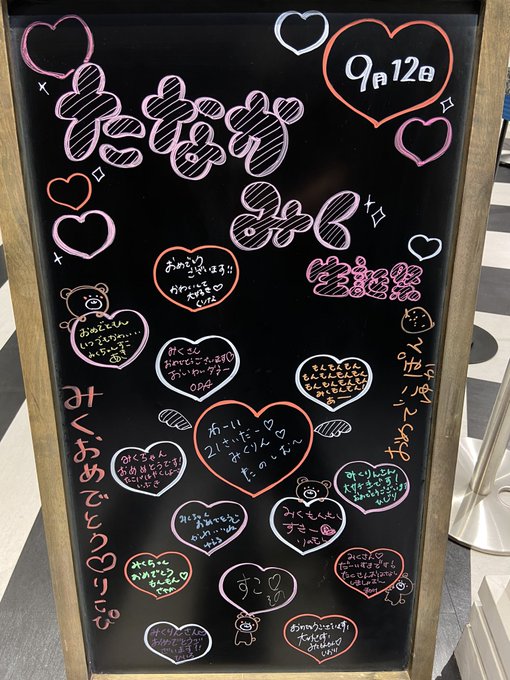 9月12日
たなか
みく
生誕祭
おめでとう
ございます!!
かわいくて
大好き♡
おめでともん
いつでもかわ、、、
みくちゃんすこ
みくさん
おめでとうございます♡
おいわいダァー
ODA
もんもんもん
もんもんもんもん
もんもんもんもん
みくもんもん
あー
わーい♡
21さいだー♡
みくりん
たのしむ〜
みくちゃん
おめめとうです!
いぶき
みくりんさん
大好きです!
おめでとうございます
みくちゃん
おめでとう
みくもんもん
すきー♡
みくちゃん
おめでとう
もんもん
さやか
すこ♡
みくさん♡
だーいすきです!
みくりんさん♡
おめでとうござ
います!!
おめでとうございます!
大好きです!
いおり
みくおめでとう♡りこぴ